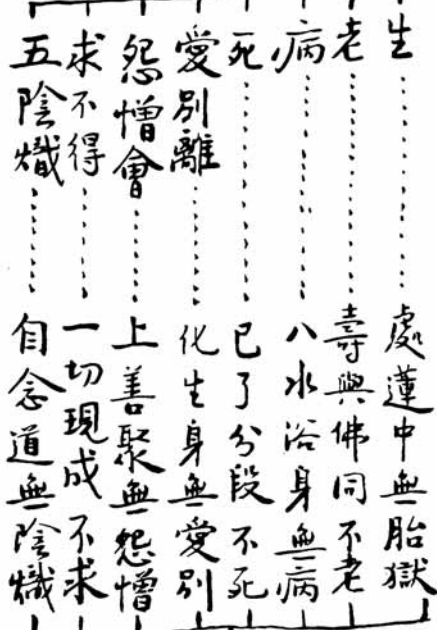 生⋯⋯處蓮中無胎獄
老⋯⋯壽與佛同不老
病⋯⋯八水浴身無病
死⋯⋯已了分段不死
愛別離⋯⋯化生身無愛別
怨憎會⋯⋯上善聚無怨憎
求不得⋯⋯一切現成不求
五陰熾⋯⋯自念道無陰熾